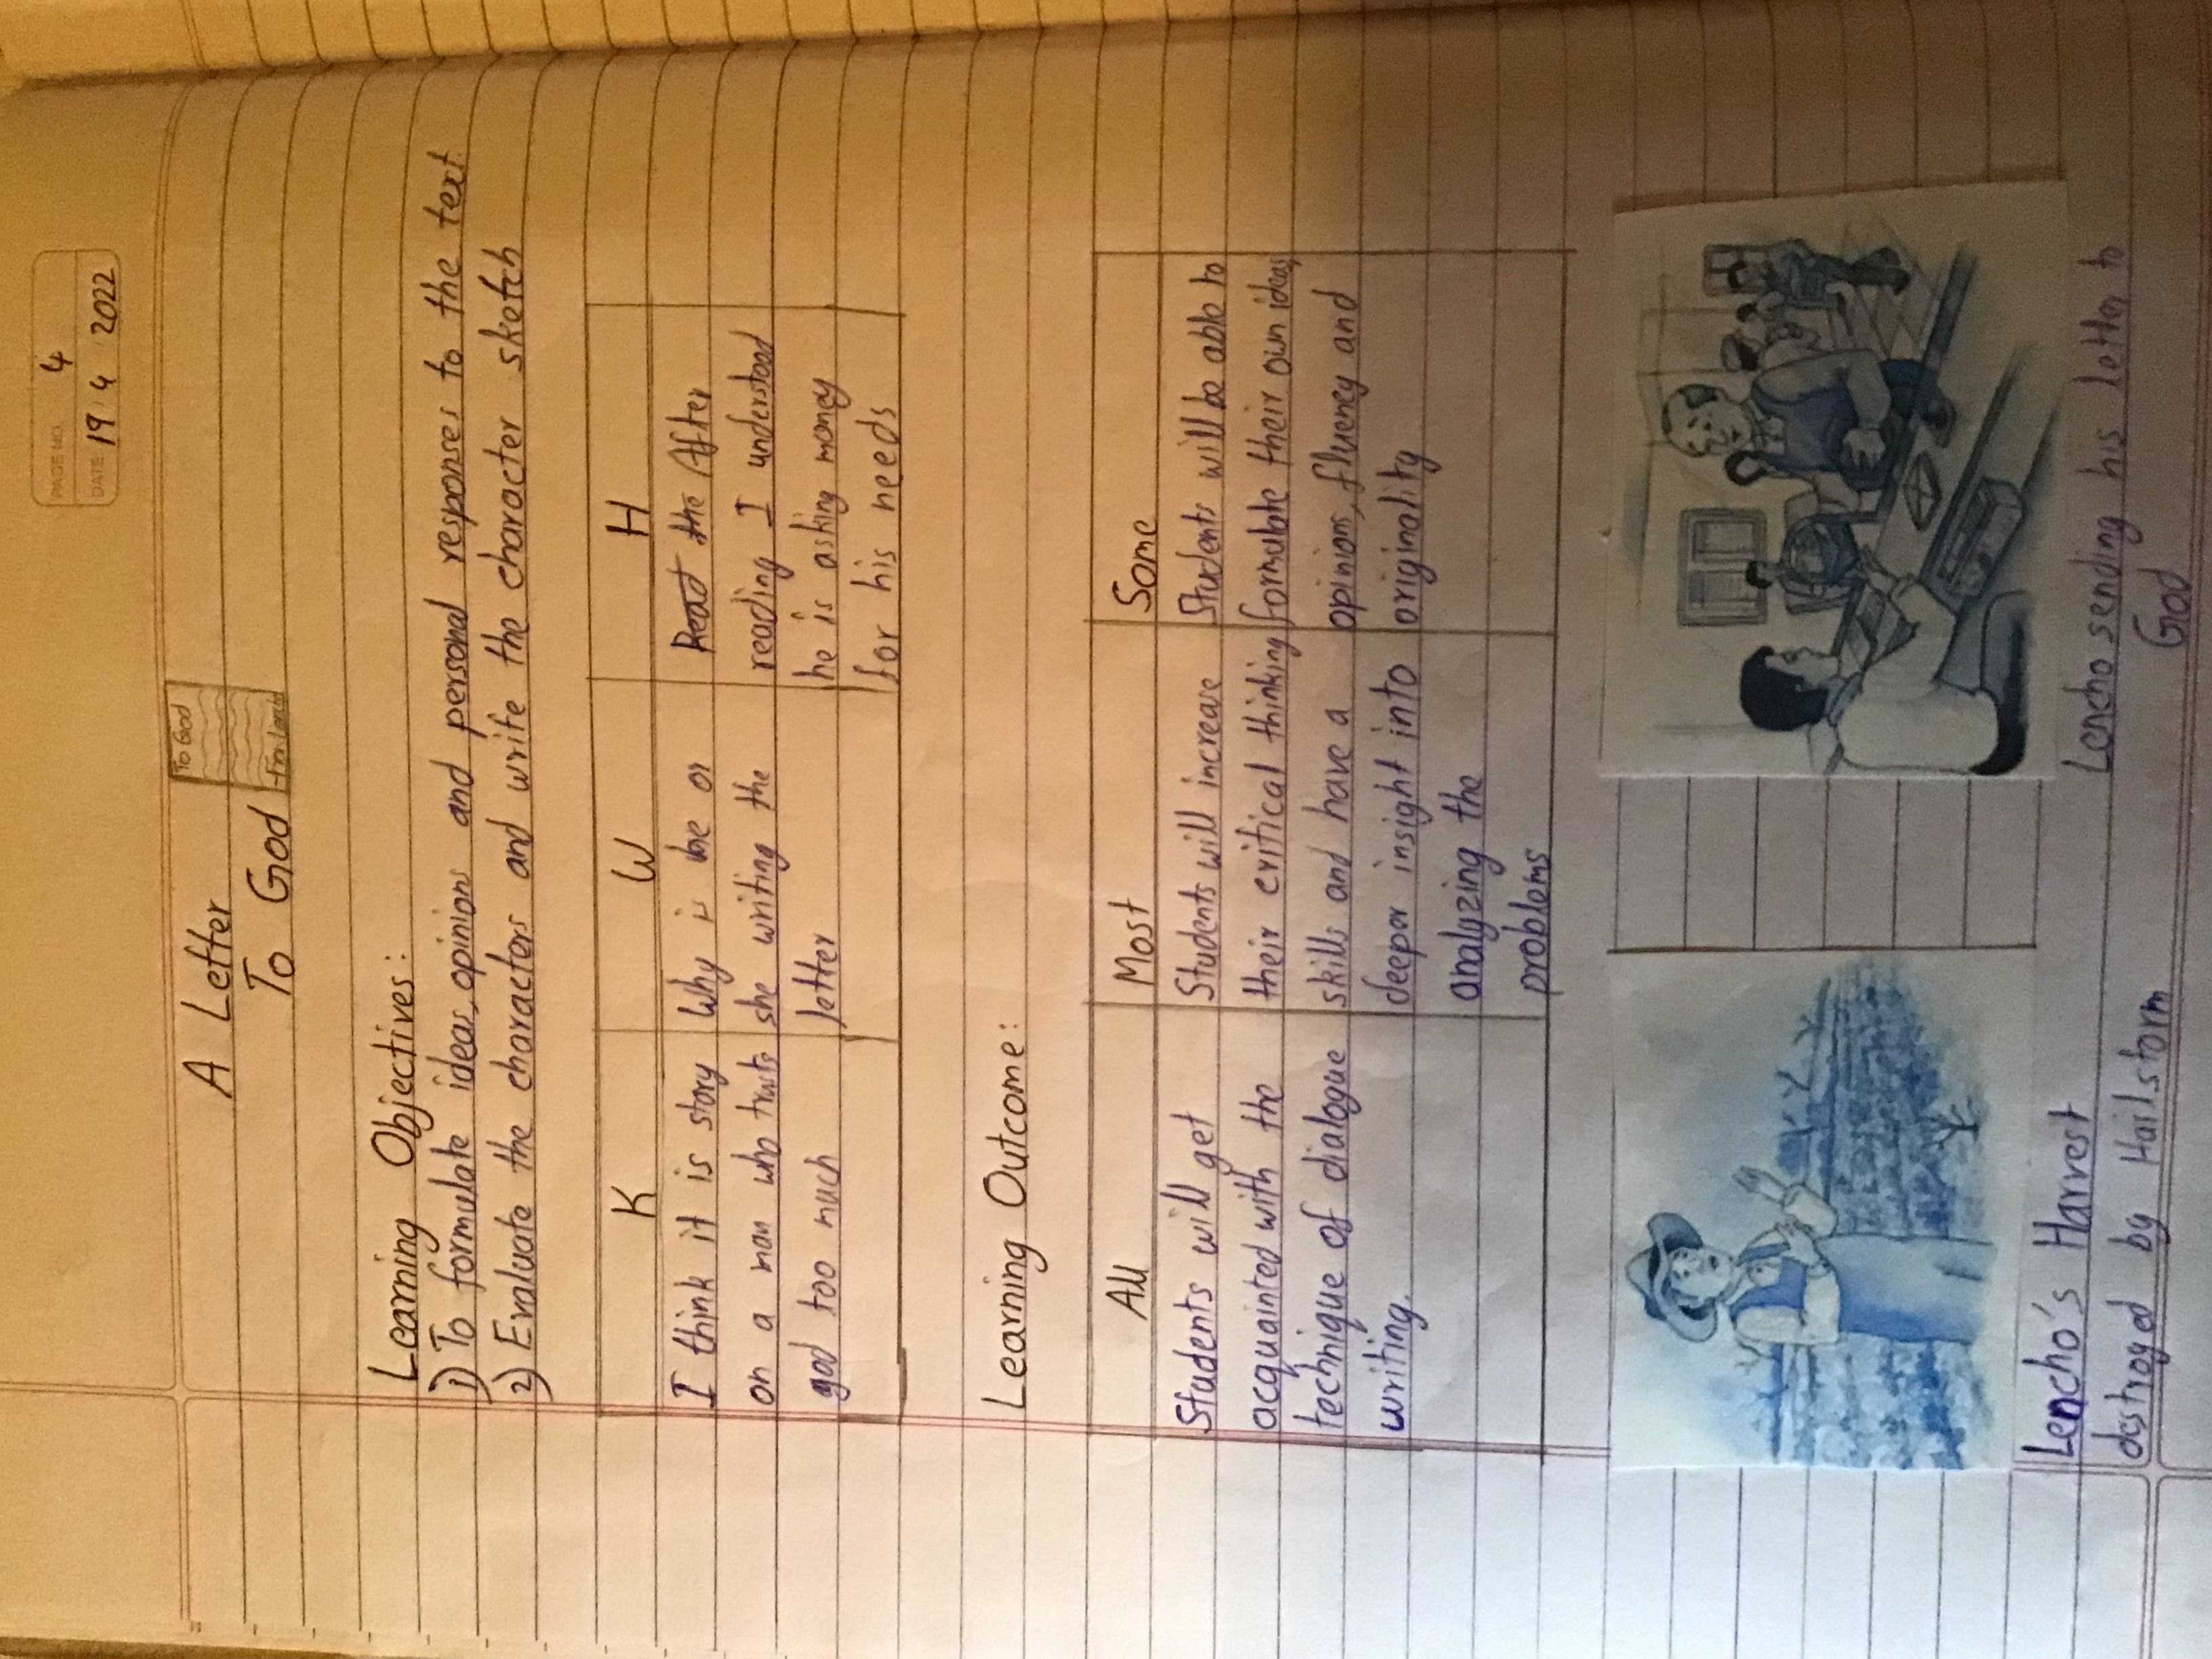 PAGE NO. 4
DATE 19 / 4 / 2022
A Letter
To God
To God
Learning Objectives:
1) To formulate ideas, opinions and personal responses to the text.
2) Evaluate the characters and write the character sketch
K W H
I think it is story
on a man who trusts
god too much
Why is he or
she writing the
letter
Read the After
reading I understood
he is asking money
for his needs
Learning Outcome:
All Most Some
Students will get
acquainted with the
technique of dialogue
writing.
Students will increase
their critical thinking
skills and have a
deeper insight into
analyzing the
problems
Students will be able to
formulate their own ideas,
opinions, fluency and
originality
Lencho's Harvest
destroyed by Hailstorm
Lencho sending his letter to
God